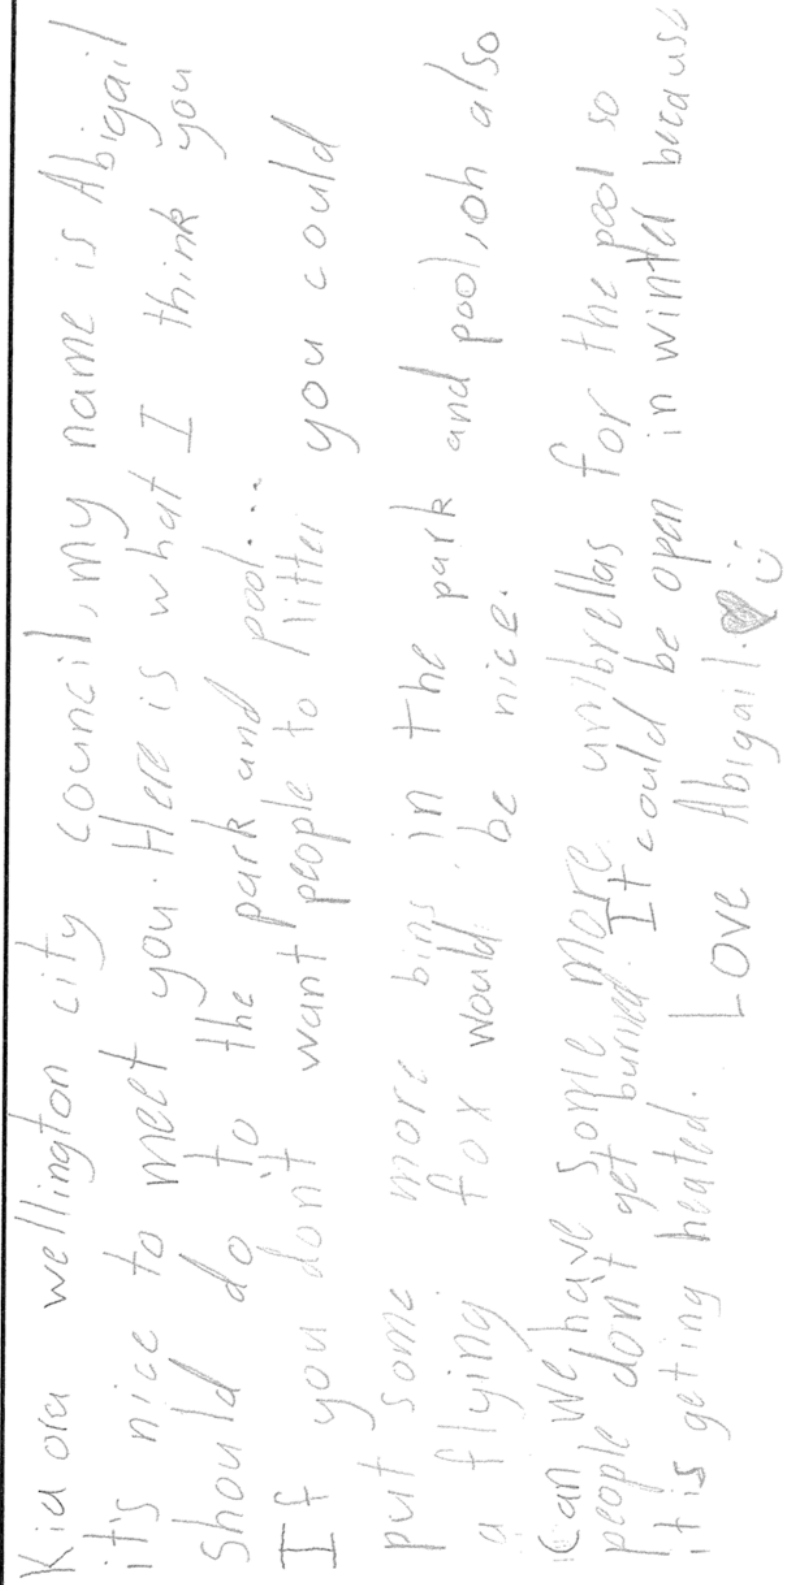 Kia ora wellington city council, my name is Abigail
it's nice to meet you. Here is what I think you
should do to the park and pool...
If you don't want people to litter you could
put some more bins in the park and pool, oh also
a flying fox would be nice.
Can we have some more umbrellas for the pool so
people don't get buried. It could be open in winter because
it is geting heated. Love Abigail.